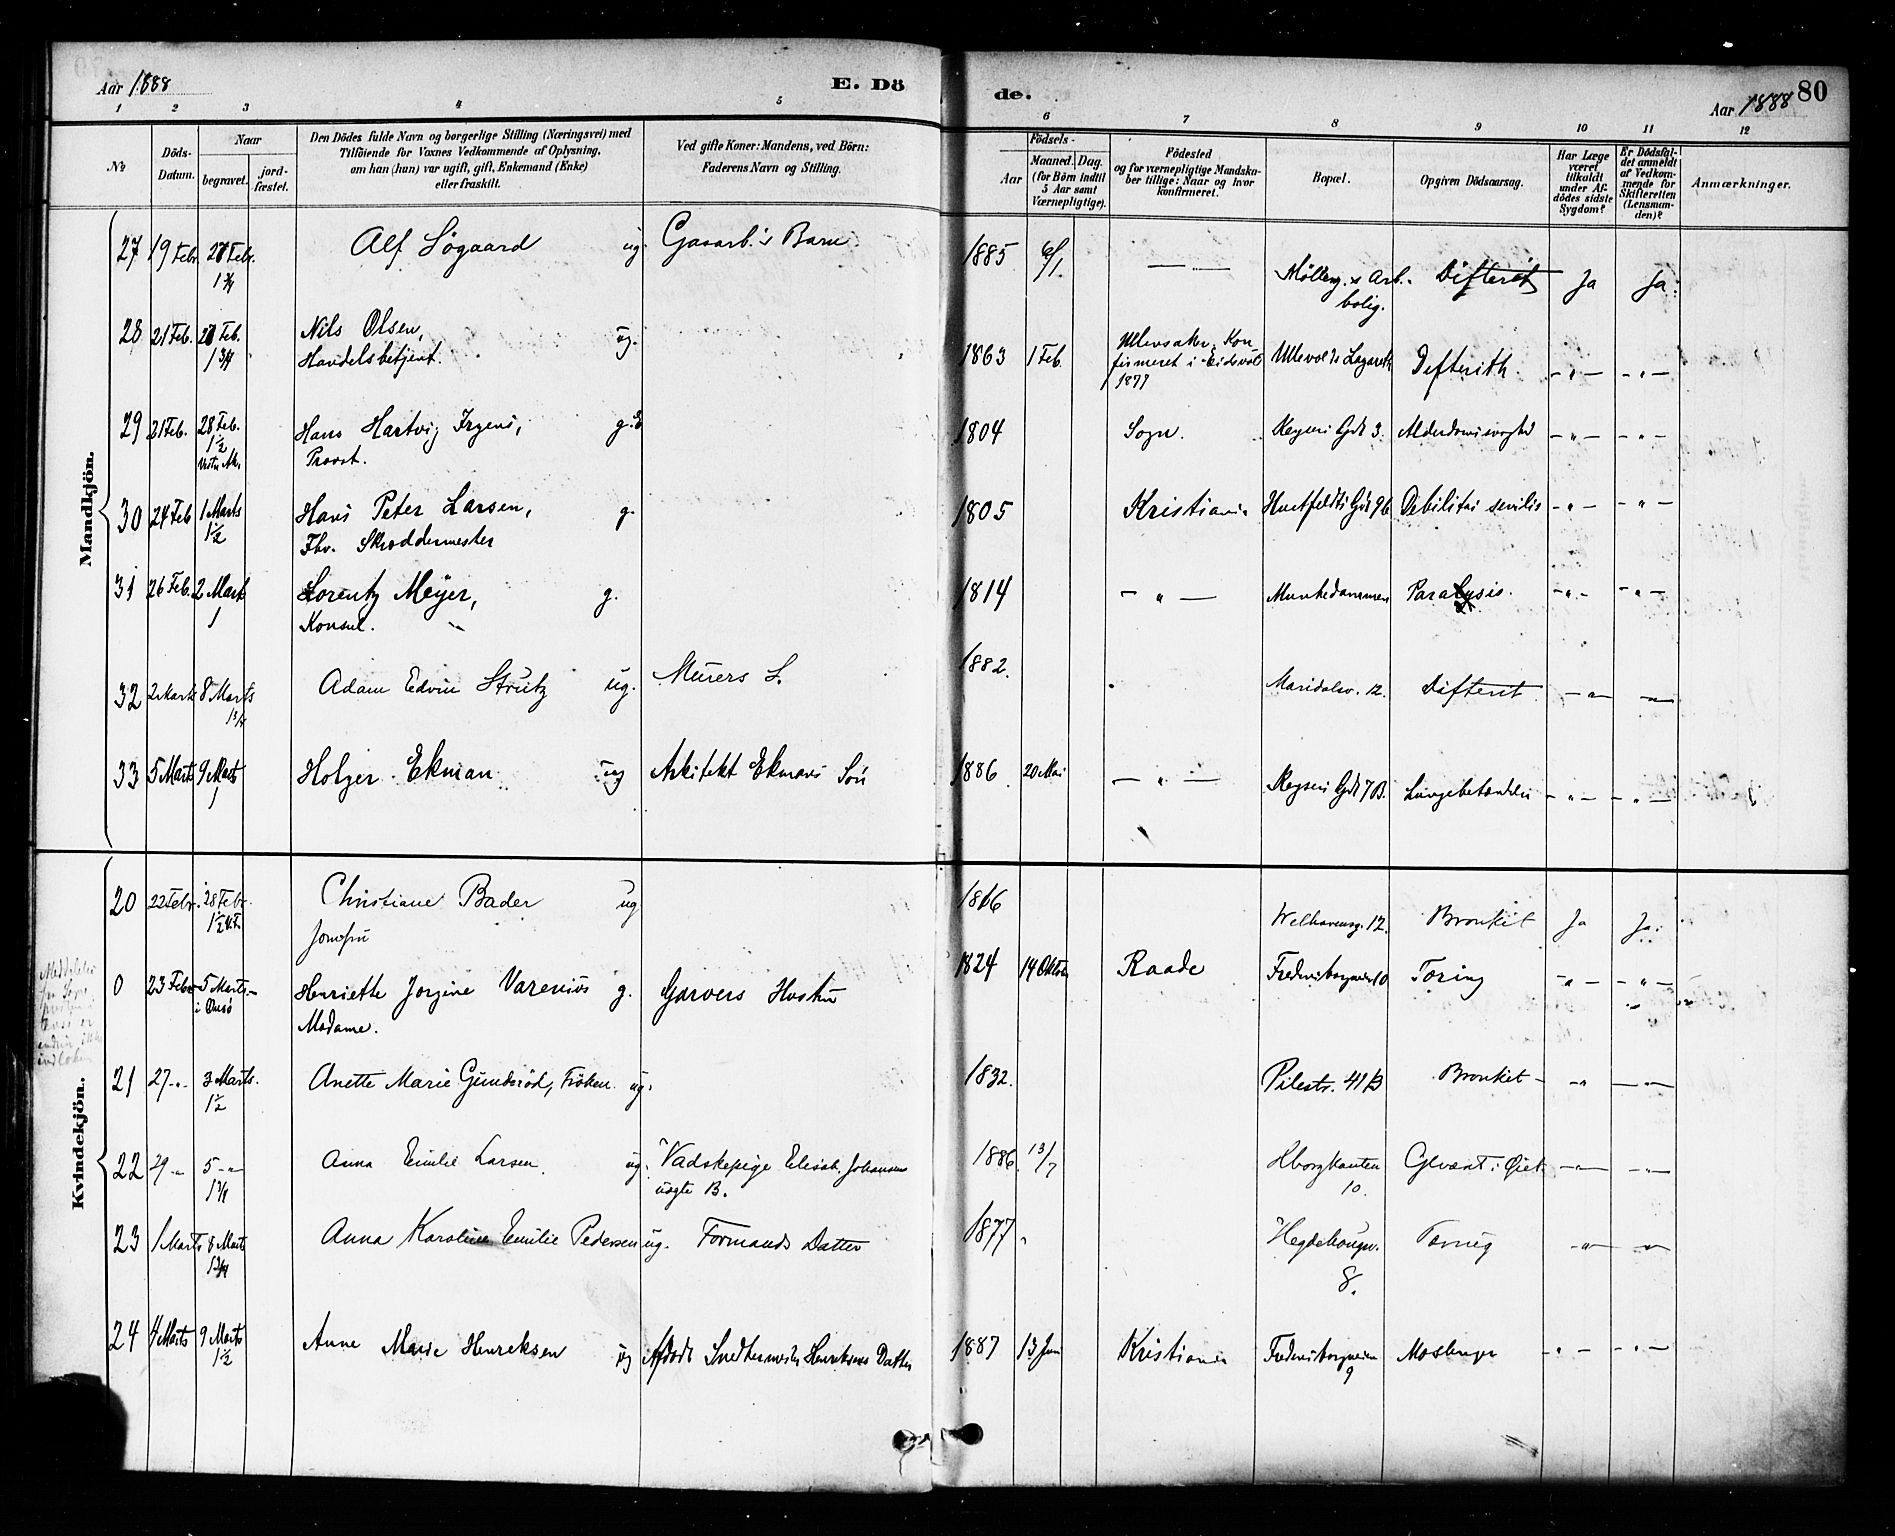 Aar 1888
E. Dö
de.
Aar 1888
80
1 2 3 4 5 6 7 8 9 10 11 12
No
Döds-
Datum.
Naar
begravet.
jord-
fæstet.
Den Dödes fulde Navn og borgerlige Stilling (Næringsvei) med
Tilföiende for Voxnes Vedkommende af Oplysning,
om han (hun) var ugift, gift, Enkemand (Enke)
eller fraskilt.
Ved gifte Koner: Mandens, ved Börn:
Faderens Navn og Stilling.
Födsels-
Aar
Maaned. Dag.
(for Börn indtil
5 Aar samt
Værnepligtige).
Födested
og for værnepligtige Mandska-
ber tillige: Naar og hvor
konfirmeret.
Bopæl.
Opgiven Dödsaarsag.
Har Læge
været
tilkaldt
under Af-
dödes sidste
Sygdom?
Er Dödsfal-
det anmeldt
af Vedkom-
mende for
Skifteretten
(Lensman-
den)?
Anmærkninger.
Mandkjön.
27 19 Febr. Febr. Alf Sögaard ug. Gasarb.'s Barn 1885 6/1 — — Mölleng.s Arb.- Difterit Ja Ja.
bolig.
28 21 Feb. Feb. Nils Olsen, ug. 1863 1 Feb. Ullensaker. Kon Ullevolds Lazareth Difterith. -"- -"-
Handelsbetjent. firmeret i Eidsvold
1877
29 21 Feb. 28 Feb. Hans Hartvig Irgens, 1804 Sogn. Keysers Gd. 3. Alderdomssvaghed -"- -"-
1½
Vestre Ak. Provst.
30 24 Feb 1 Marts Hans Peter Larsen, g. 1805 Kristiania Huitfeldts Gd 9b Debilitas senilis -"- -"-
1½ Fhv. Skræddermester
31 26 Feb. 2 Marts Lorentz Meyer, g. 1814 -"- Munkedammen Paralysis. -"- -"-
1 Konsul.
32 2 Marts 8 Marts Adam Edvin Strutz ug. Murers S. 1882. Maridalsv. 12. Difterit -"- -"-
33 5 Marts 9 Marts Holger Ekman ug Arkitekt Ekmans Sön 1886 20 Mai -"- Keysers Gd. 7B. Lungebetændelse -"- -"-
1
Kvindekjön.
20 22 Febr. 28 Febr. Christiane Bader ug 1816 Welhavensg. 12. Bronkit Ja Ja.
1½ Jomfru
0 23 Febr 5 Marts Henriette Jorgine Varenius g. Garvers Hustru 1824 14 Oktbr Raade Frederiksborgveien 10 Tæring -"- -"-
i Onsö Madame.
21 27-"- 3 Marts. Anette Marie Gundsröd, Fröken. ug. 1832. Pilestr. 41 B Bronkit -"- -"-
1½
22 29-"- 5-"- Anna Emilie Larsen. ug. Vadskepige Elisab. Johansen 1886. 13/7 Hborgkanten Glvært i Öiet -"- -"-
uægte B. 10.
23 1 Marts 8 Marts Anna Karoline Emilie Pedersen ug. Formands Datter 1877 Hegdehougsv. Tæring -"- -"-
8.
24 4 Marts 9 Marts Anne Marie Henriksen ug Afdöde Snedkermester Henriksens Datter 1887 13 Juni Kristiania Frederiksborgveien Mæslinger -"- -"-
1½ 9